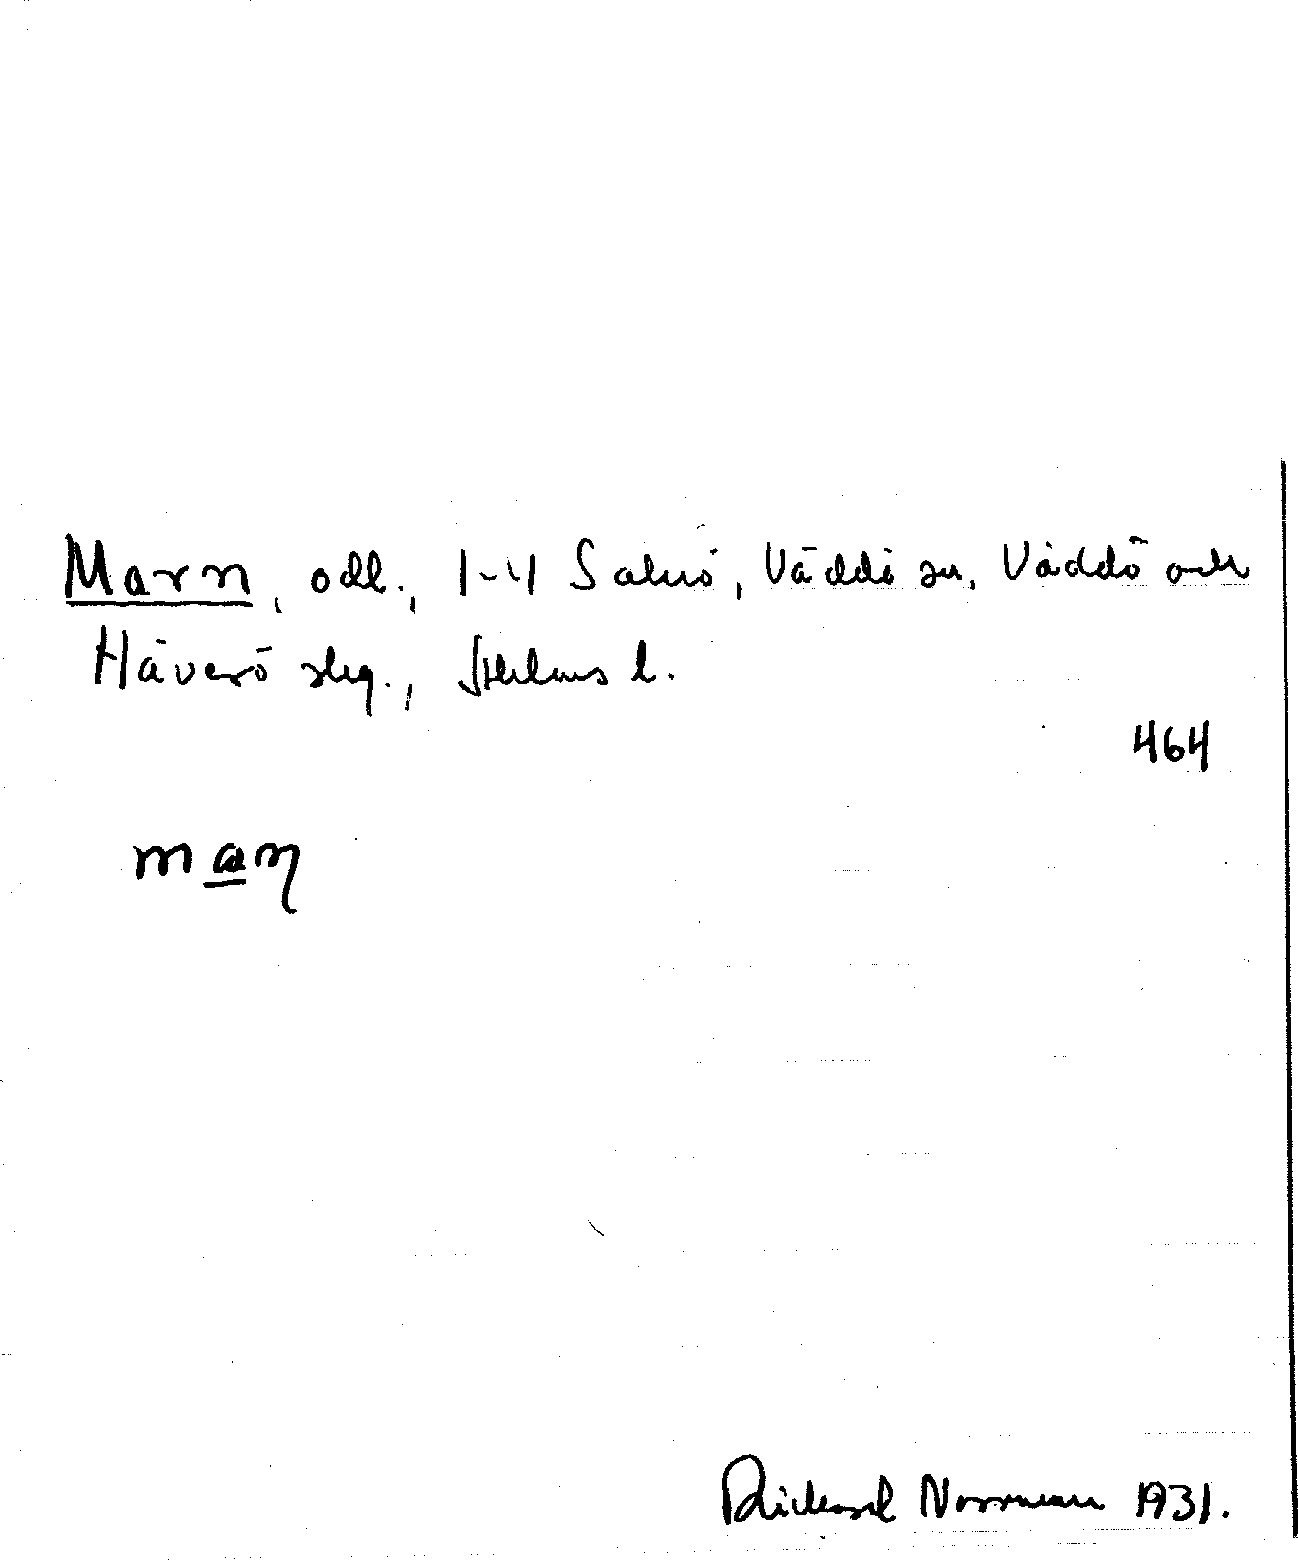 Marn, odl., 1-4 Salnö, Väddö sn, Väddö och
Häverö skg., Sthlms l.
464
maɳ
Rickard Norrman 1931.